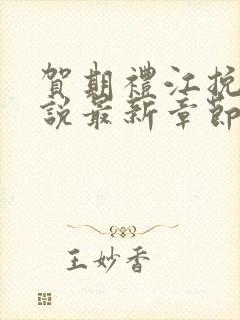 賀期禮江挽
說最新章節
王妙香